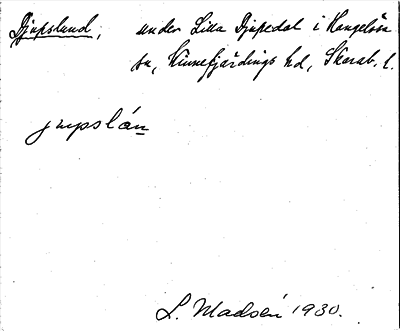 Djupslund, under Lilla Djupedal i Hangelösa
sn, Kinnefjärdings hd, Skarab. l.
jupslán
L. Madsén 1930.